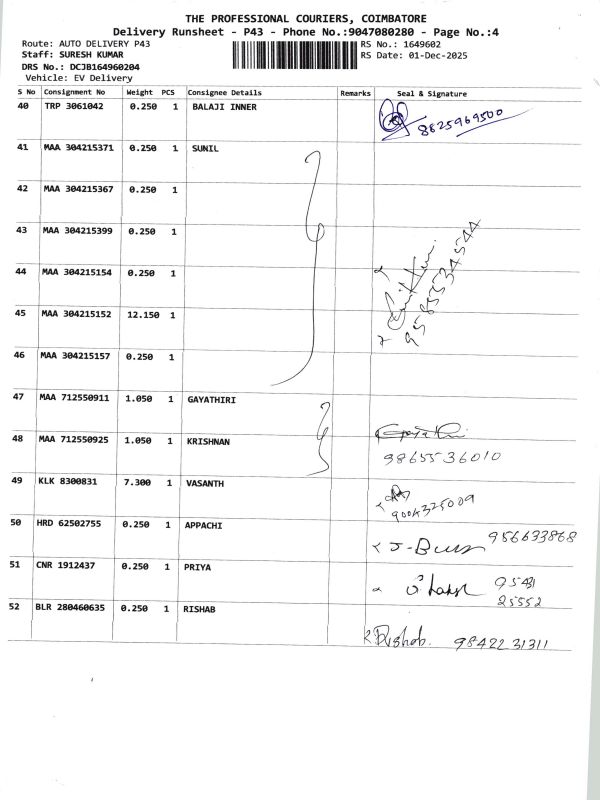 THE PROFESSIONAL COURIERS, COIMBATORE
Delivery Runsheet - P43 - Phone No.:9047080280 - Page No.:4
Route: AUTO DELIVERY P43 RS No.: 1649602
Staff: SURESH KUMAR RS Date: 01-Dec-2025
DRS No.: DCJB164960204
Vehicle: EV Delivery
S No Consignment No Weight PCS Consignee Details Remarks Seal & Signature
40 TRP 3061042 0.250 1 BALAJI INNER
8825969500
41 MAA 304215371 0.250 1 SUNIL
42 MAA 304215367 0.250 1
43 MAA 304215399 0.250 1
44 MAA 304215154 0.250 1
45 MAA 304215152 12.150 1
46 MAA 304215157 0.250 1
47 MAA 712550911 1.050 1 GAYATHIRI
Gayathri
48 MAA 712550925 1.050 1 KRISHNAN
9865536010
49 KLK 8300831 7.300 1 VASANTH
9004325009
50 HRD 62502755 0.250 1 APPACHI
956633868
51 CNR 1912437 0.250 1 PRIYA
25552
52 BLR 280460635 0.250 1 RISHAB
Rishab. 98422 31311